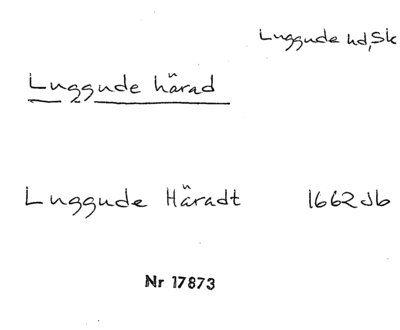 Luggude hd, Sk
Luggude härad
Luggude Häradt 1662 Jb
Nr 17873